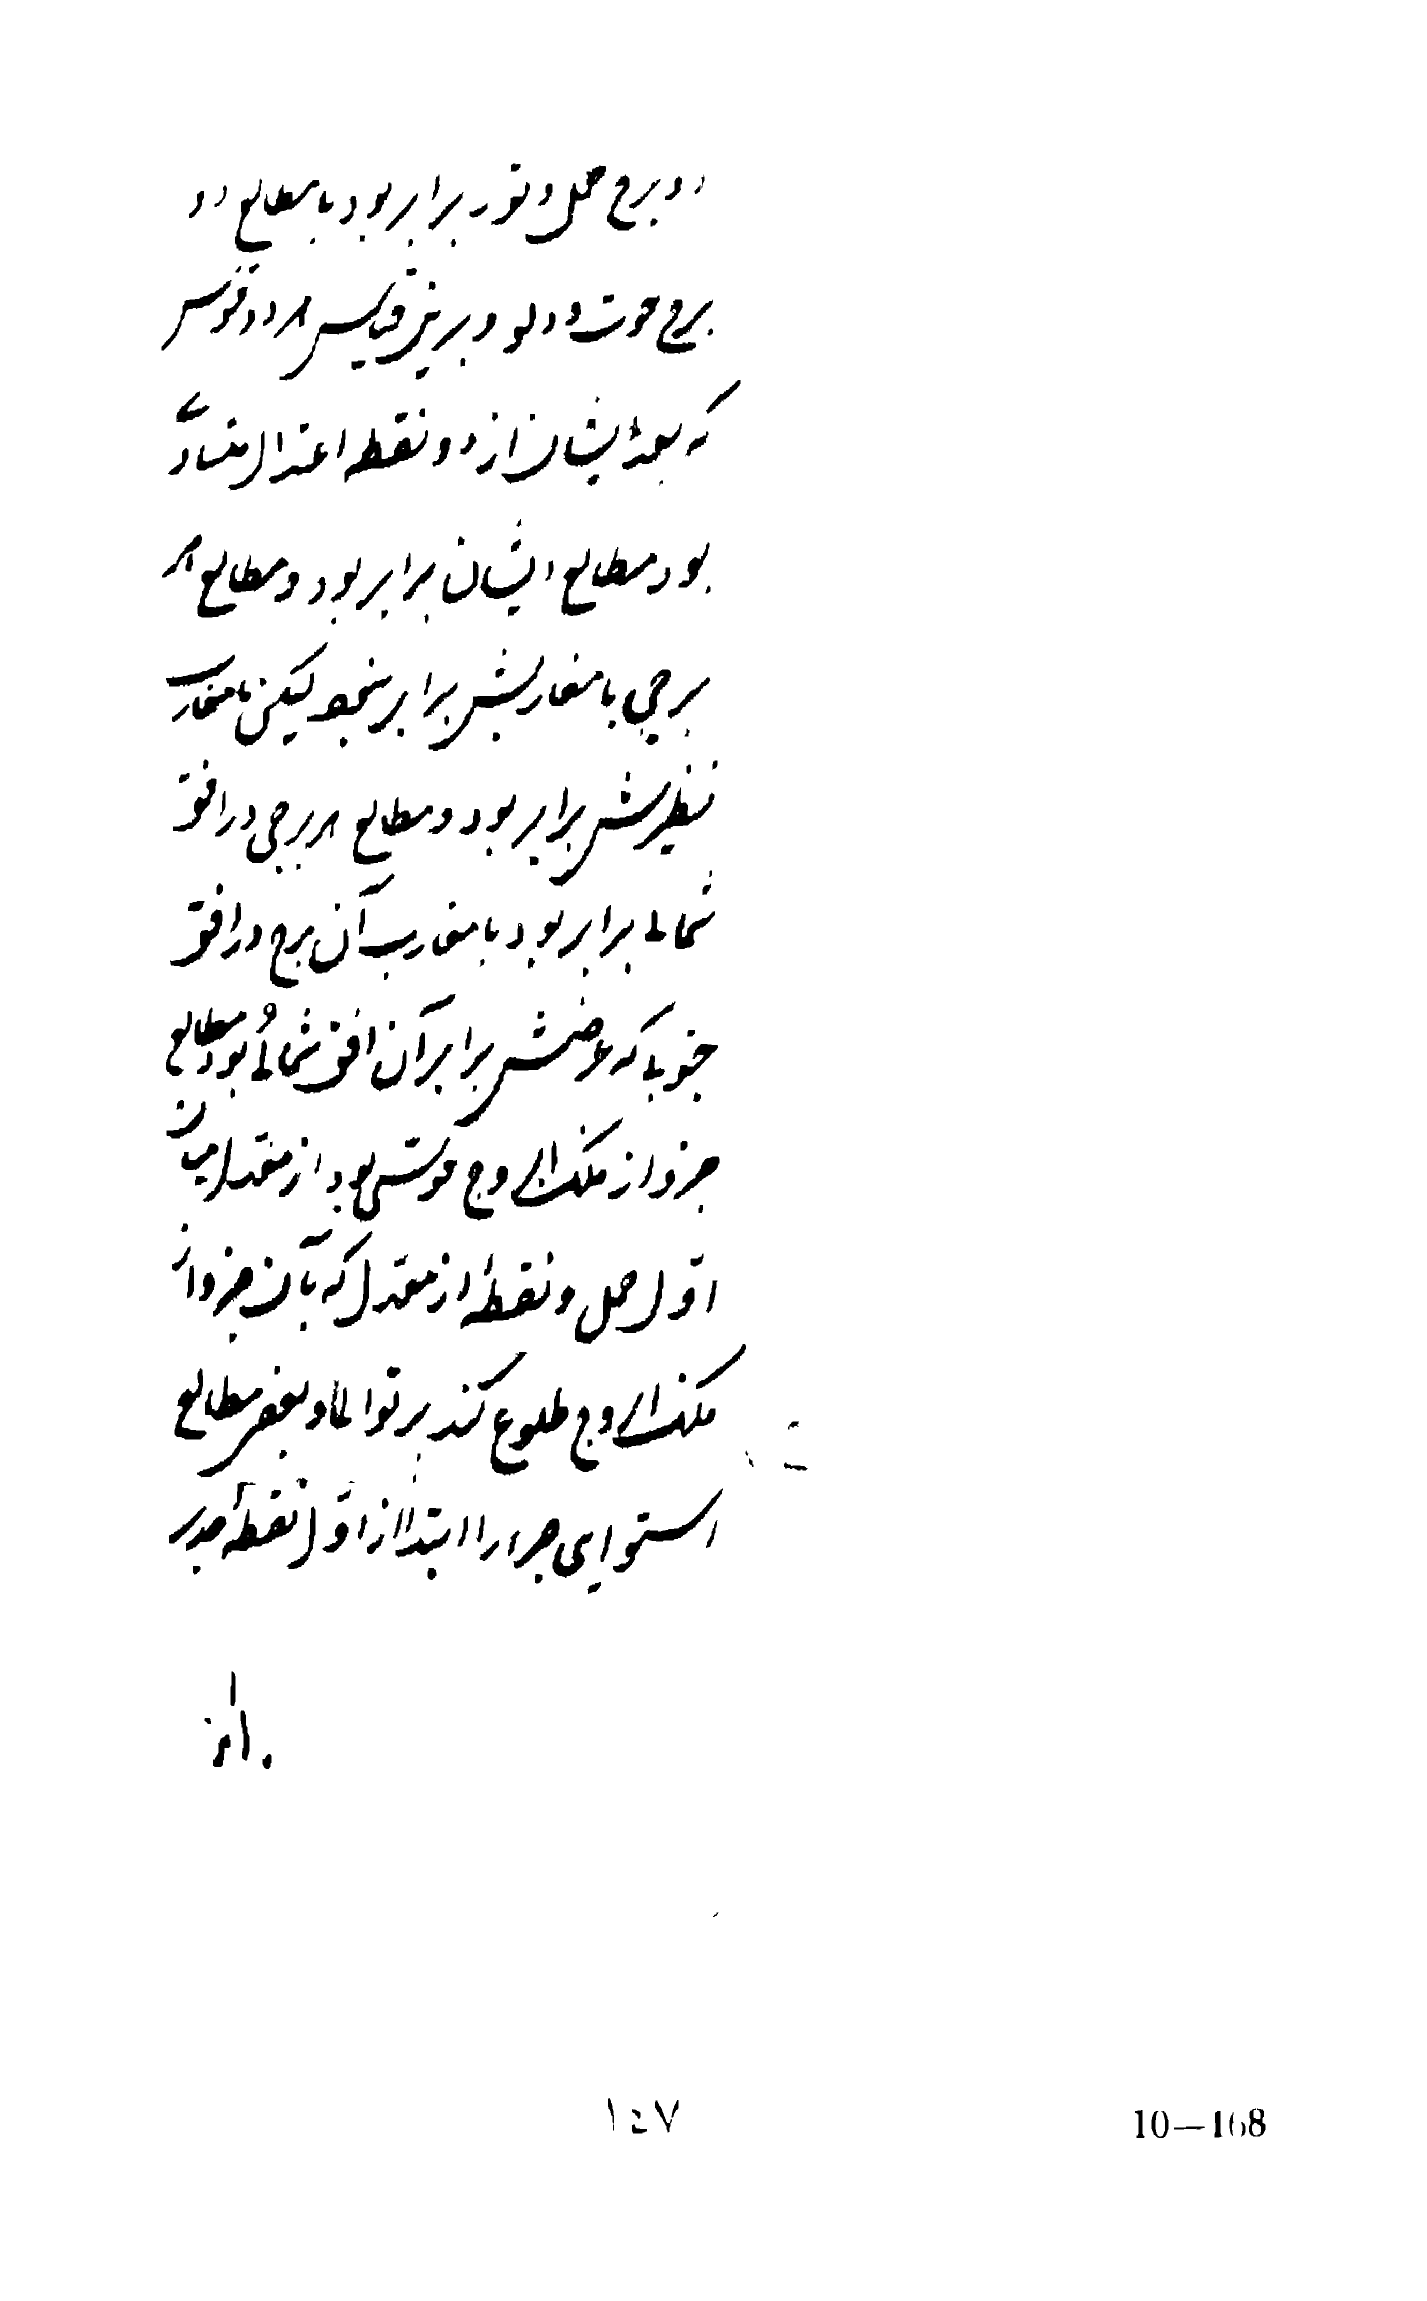 دو برج حمل و ثور برابر بود با مطالع دو
برج حوت و دلو و برین قیاس هر دو قوس
که بعد ایشان از دو نقطه اعتدال متساوی
بود مطالع ایشان برابر بود و مطالع هر
برجی با مغاربش برابر نبود لیکن با مغارب
نظیرش برابر بود و مطالع هر برجی در افق
شمالی برابر بود با مغارب آن برج در افق
جنوبی که عرضش برابر آن افق شمالی بود و مطالع
جزو از فلک البروج قوسی بود از معدل میان
اوّل حمل و نقطهٔ از معدل که بآن جزو از
فلک البروج طلوع کند بر توالی و بعضی مطالع
استوایی جزء را ابتدا از اوّل نقطهٔ جدی
١٤٧
10—168